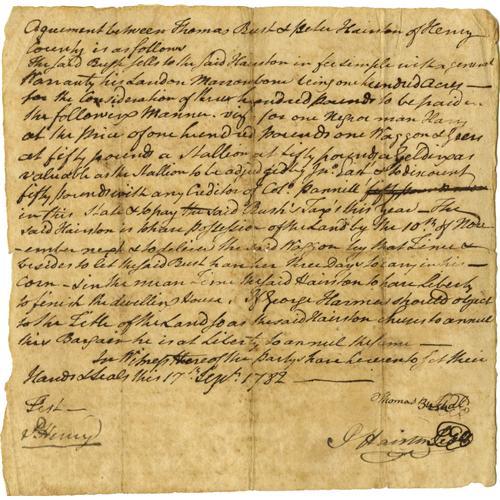 Agreement between Thomas Bush & Peter Hairston of Henry
County is as follows
The said Bush sells to the said Hairston in fee simple with a general
Warranty his Land on Marrowbone being one hundred Acres —
for the Consideration of three hundred pounds to be paid in
the following Manner viz for one Negroe man Harry
at the Price of one hundred pounds one Waggon & Geers
at fifty pounds a Stallion at fifty pounds a Gelding as
valuable as the Stallion to be adjudged by & to discount
fifty pounds with any Creditor of Colo. Pannell
in this State & to pay the said Bush's Tax's this year — The
said Hairston is to have Possession of the Land by the 10th of Nov-
ember next & to deliver the said Waggon by that Time &
besides to let the said Bush have her three Days to carry in his
Corn — in the mean Time the said Hairston to have Liberty
to finish the dwelling House. If George Harmer should object
to the Title of the Land so as the said Hairston chuses to annul
this Bargain he is at Liberty to annul the same —
In Witness whereof the Partys have hereunto set their
Hands & Seals this 17th Sept. 1782 —
Test —
Thomas Bush Seal
P. Henry
P Hairston Seal